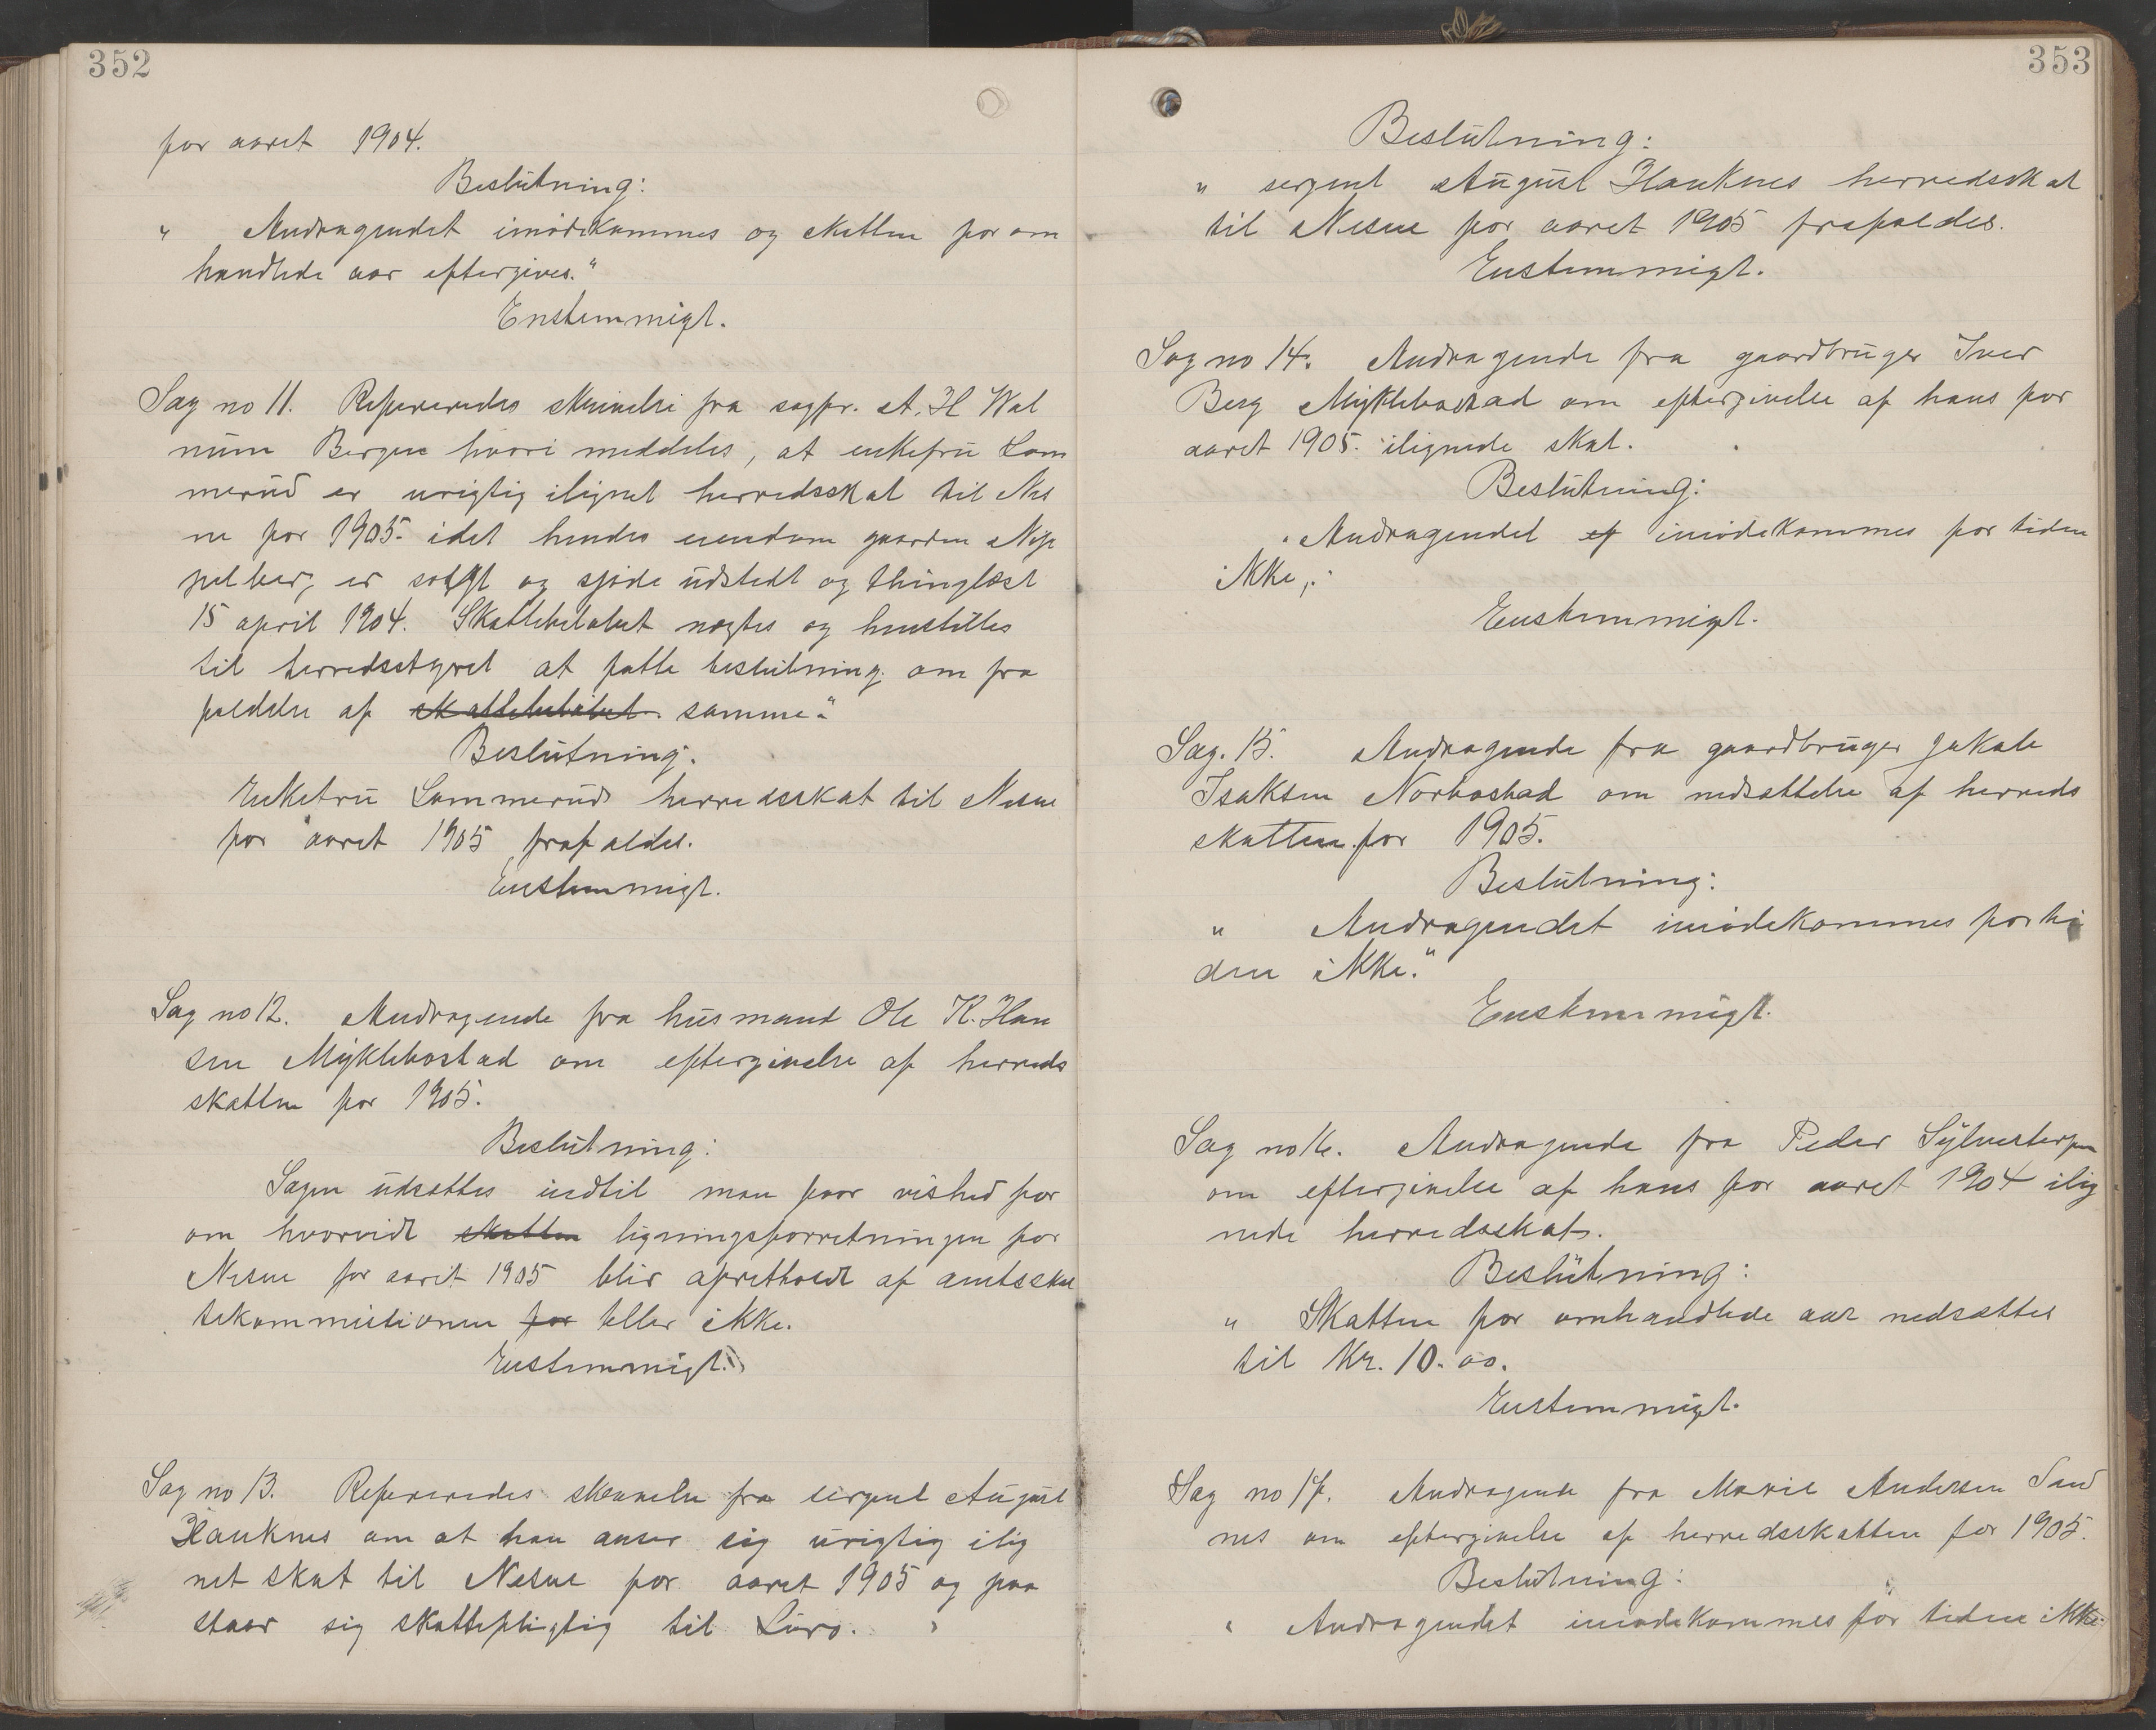 352
for aaret 1904.
Beslutning:
" Andragendet imødekommes og skatten for om
handlede aar eftergives."
Enstemmigt.
Sag no 11. Refereredes skrivelse fra sagfr. A. H Wal
num Bergen hvori meddeles, at enkefru Lam
merud er urigtig ilignet herredsskat til Nes
ne for 1905 idet hendes eiendom gaarden
er solgt og sjøde udstedt og thinglæst
15 april 1904. Skattebeløbet nægtes og henstilles
til herredsstyret at fatte beslutning om fra
faldelse af skattebeløbet samme."
Beslutning.
Enkefru Lammeruds herredsskat til Nesne
for aaret 1905 frafaldes.
Enstemmigt.
Sag no 12. Andragende fra husmand Ole K. Han
sen Myklebostad om eftergivelse af herreds
skatten for 1905.
Beslutning:
Sagen udsættes indtil man faar vished for
om hvorvidt skatten ligningsforretningen for
Nesne for aaret 1905 blir opretholdt af amtsskat
tekommissionen for eller ikke.
Enstemmigt.
Sag no 13. Refereredes skrivelse fra sergent August
Hauknes om at han anser sig urigtig ilig
net skat til Nesne for aaret 1905 og paa
staar sig skattepligtig til Lurø.
353
Beslutning:
" sergent August Hauknes herredsskat
til Nesne for aaret 1905 frafaldes.
Enstemmigt.
Sag no 14. Andragende fra gaardbruger Iver
Berg Myklebostad om eftergivelse af hans for
aaret 1905 ilignede skat.
Beslutning:
"Andragendet ef imødekommes for tiden
ikke."
Enstemmigt.
Sag. 15. Andragende fra gaardbruger Jakob
Isaksen Norbostad om nedsættelse af herreds
skatten for 1905.
Beslutning:
" Andragendet imødekommes for ti
den ikke."
Enstemmigt.
Sag no 16. Andragende fra Peder Sylvestersen
om eftergivelse af hans for aaret 1904 ilig
nede herredsskat.
Beslutning:
" Skatten for omhandlede aar nedsættes
til Kr. 10.00.
Enstemmigt.
Sag no 17. Andragende fra Marie Andersen Sand
nes om eftergivelse af herredsskatten for 1905.
Beslutning:
" Andragendet imødekommes for tiden ikke."